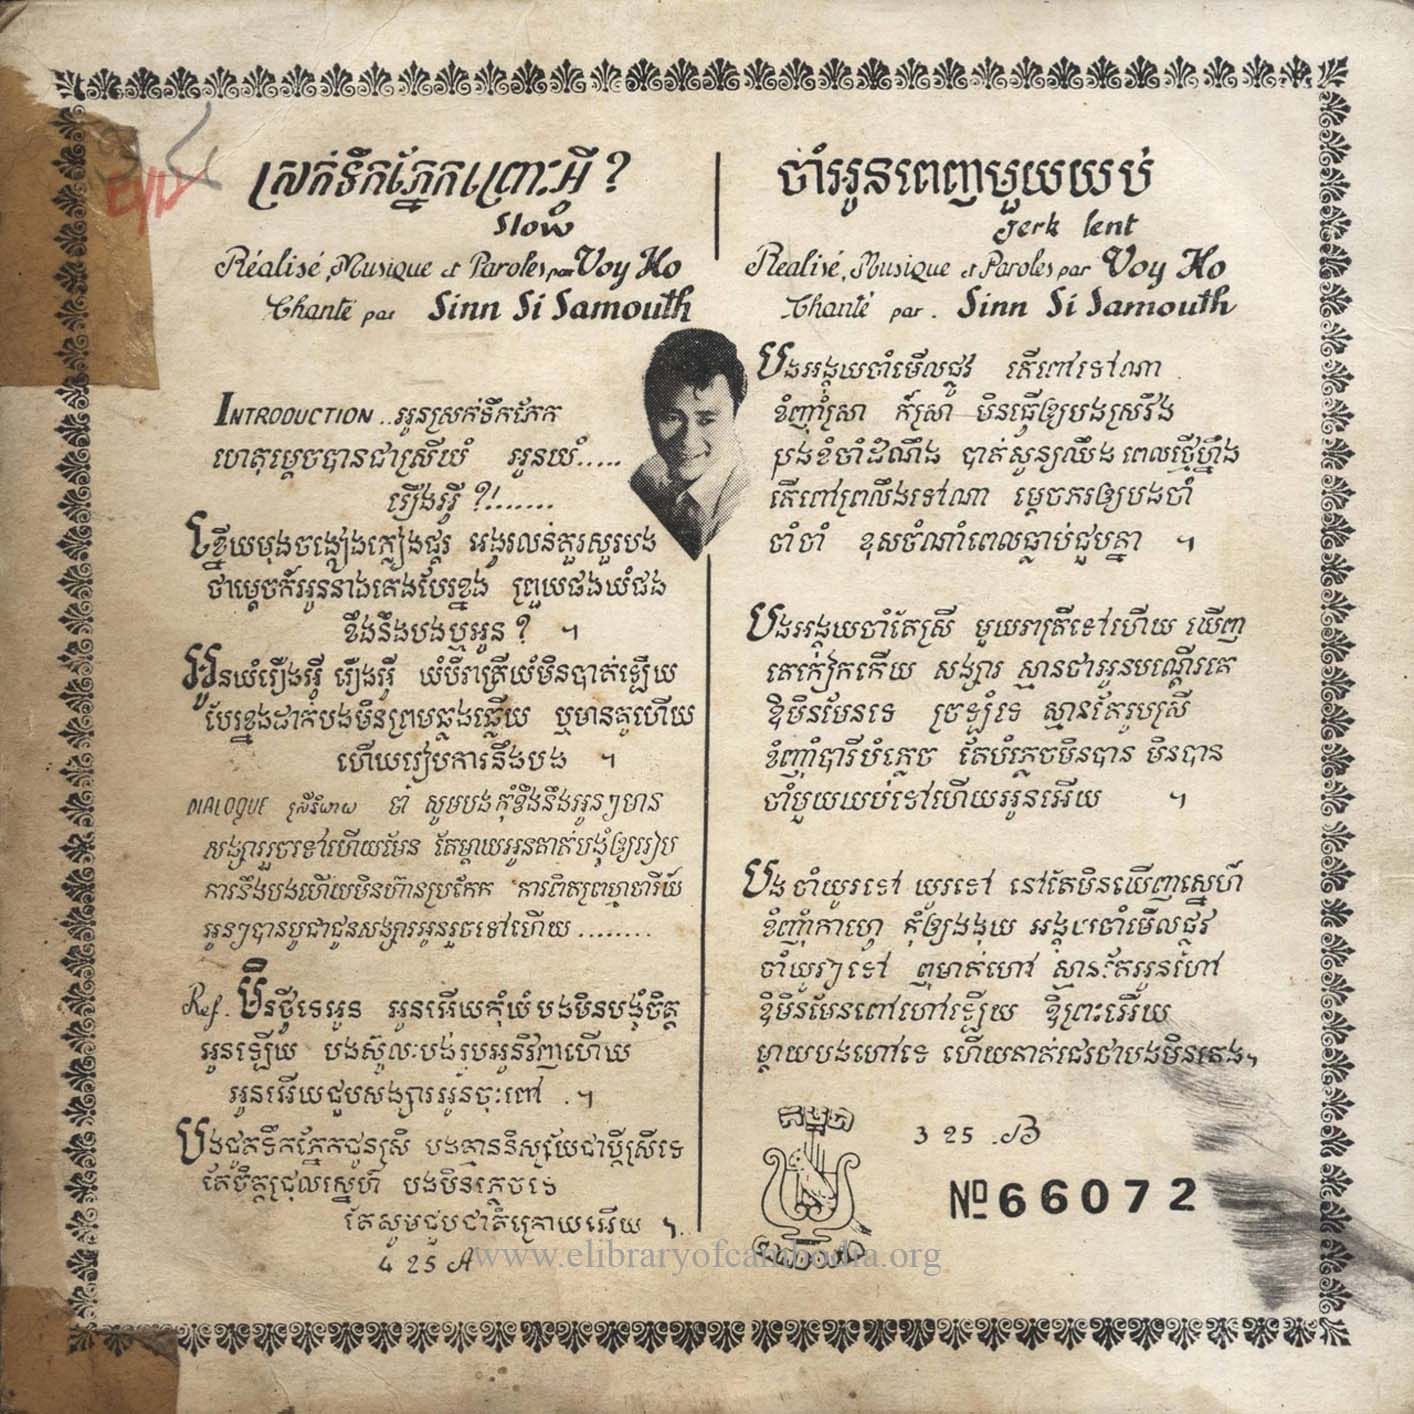 ស្រក់ទឹកភ្នែកព្រោះអ្វី ?
Slow
Réalisé, Musique et Paroles par Voy Ho
Chanté par Sinn Si Samouth
INTRODUCTION ..អូនស្រក់ទឹកភ្នែក
ហេតុម្ដេចបានជាស្រីយំ អូនយំ.....
រឿងអ្វី ?!.......
ខ្នើយមុងចង្កៀងភ្លៀងផ្គរ អង្វរលន់តួរសួរបង
ថាម្ដេចក៏អូននាងគេងបែរខ្នង ព្រួយផងយំផង
ខឹងនឹងបងឬអូន ? ។
អូនយំរឿងអ្វី រឿងអ្វី យំបីរាត្រីយំមិនបាត់ឡើយ
បែរខ្នងដាក់បងមិនព្រមឆ្លងឆ្លើយ ឬមានគូហើយ
ហើយរៀបការនឹងបង ។
DIALOQUE ស្រីនិយាយ ចា៎ សូមបងកុំខឹងនឹងអូនៗមាន
សង្សាររួចទៅហើយមែន តែម្ដាយអូនគាត់បង្ខំឲ្យរៀប
ការនឹងបងហើយមិនហ៊ានប្រកែក ការពិតព្រហ្មចារីយ៍
អូនៗបានបូជាជូនសង្សារអូនរួចទៅហើយ ........
Ref. មិនថ្វីទេអូន អូនអើយកុំយំ បងមិនបង្ខំចិត្ត
អូនឡើយ បងស៊ូលះបង់រូបអូនវិញហើយ
អូនអើយជួបសង្សារអូនចុះពៅ . ។
បងជូតទឹកភ្នែកជូនស្រី បងគ្មាននិស្ស័យជាប្ដីស្រីទេ
តែចិត្តជ្រុលស្នេហ៍ បងមិនភ្លេចទេ
តែសូមជួបជាតិក្រោយអើយ ។
4 25 A
ចាំអូនពេញមួយយប់
Jerk lent
Realisé, Musique et Paroles par Voy Ho
Chanté par. Sinn Si Samouth
បងអង្គុយចាំមើលផ្លូវ តើពៅទៅណា
ខំញ៉ាំស្រា ក៏ស្រា មិនធ្វើឲ្យបងស្រវឹង
បងខំចាំដំណឹង បាត់សូន្យឈឹង ពេលថ្មើហ្នឹង
តើពៅព្រលឹងទៅណា ម្ដេចភរឲ្យបងចាំ
ចាំចាំ ខុសចំណាំពេលធ្លាប់ជួបគ្នា ។
បងអង្គុយចាំតែស្រី មួយរាត្រីទៅហើយ ឃើញ
គេកៀកកើយ សង្សារ ស្មានថាអូនបណ្ដើរគេ
ឱមិនមែនទេ ច្រឡំទេ ស្មានតែរូបស្រី
ខំញ៉ាំបារីបំភ្លេច តែបំភ្លេចមិនបាន មិនបាន
ចាំមួយយប់ទៅហើយអូនអើយ ។
បង ចាំយូរទៅ យូរទៅ នៅតែមិនឃើញស្នេហ៍
ខំញ៉ាំកាហ្វេ កុំឲ្យងងុយ អង្គុយចាំមើលផ្លូវ
ចាំយូរៗទៅ ឮមាត់ហៅ ស្មានតែអូនហៅ
ឱមិនមែនពៅហៅឡើយ ឱព្រះអើយ
ម្ដាយបងហៅទេ ហើយគាត់ជេរថាបងមិនគេង។
កម្ពុជា
3 25 .B
Nº 66072
www.elibraryofcambodia.org